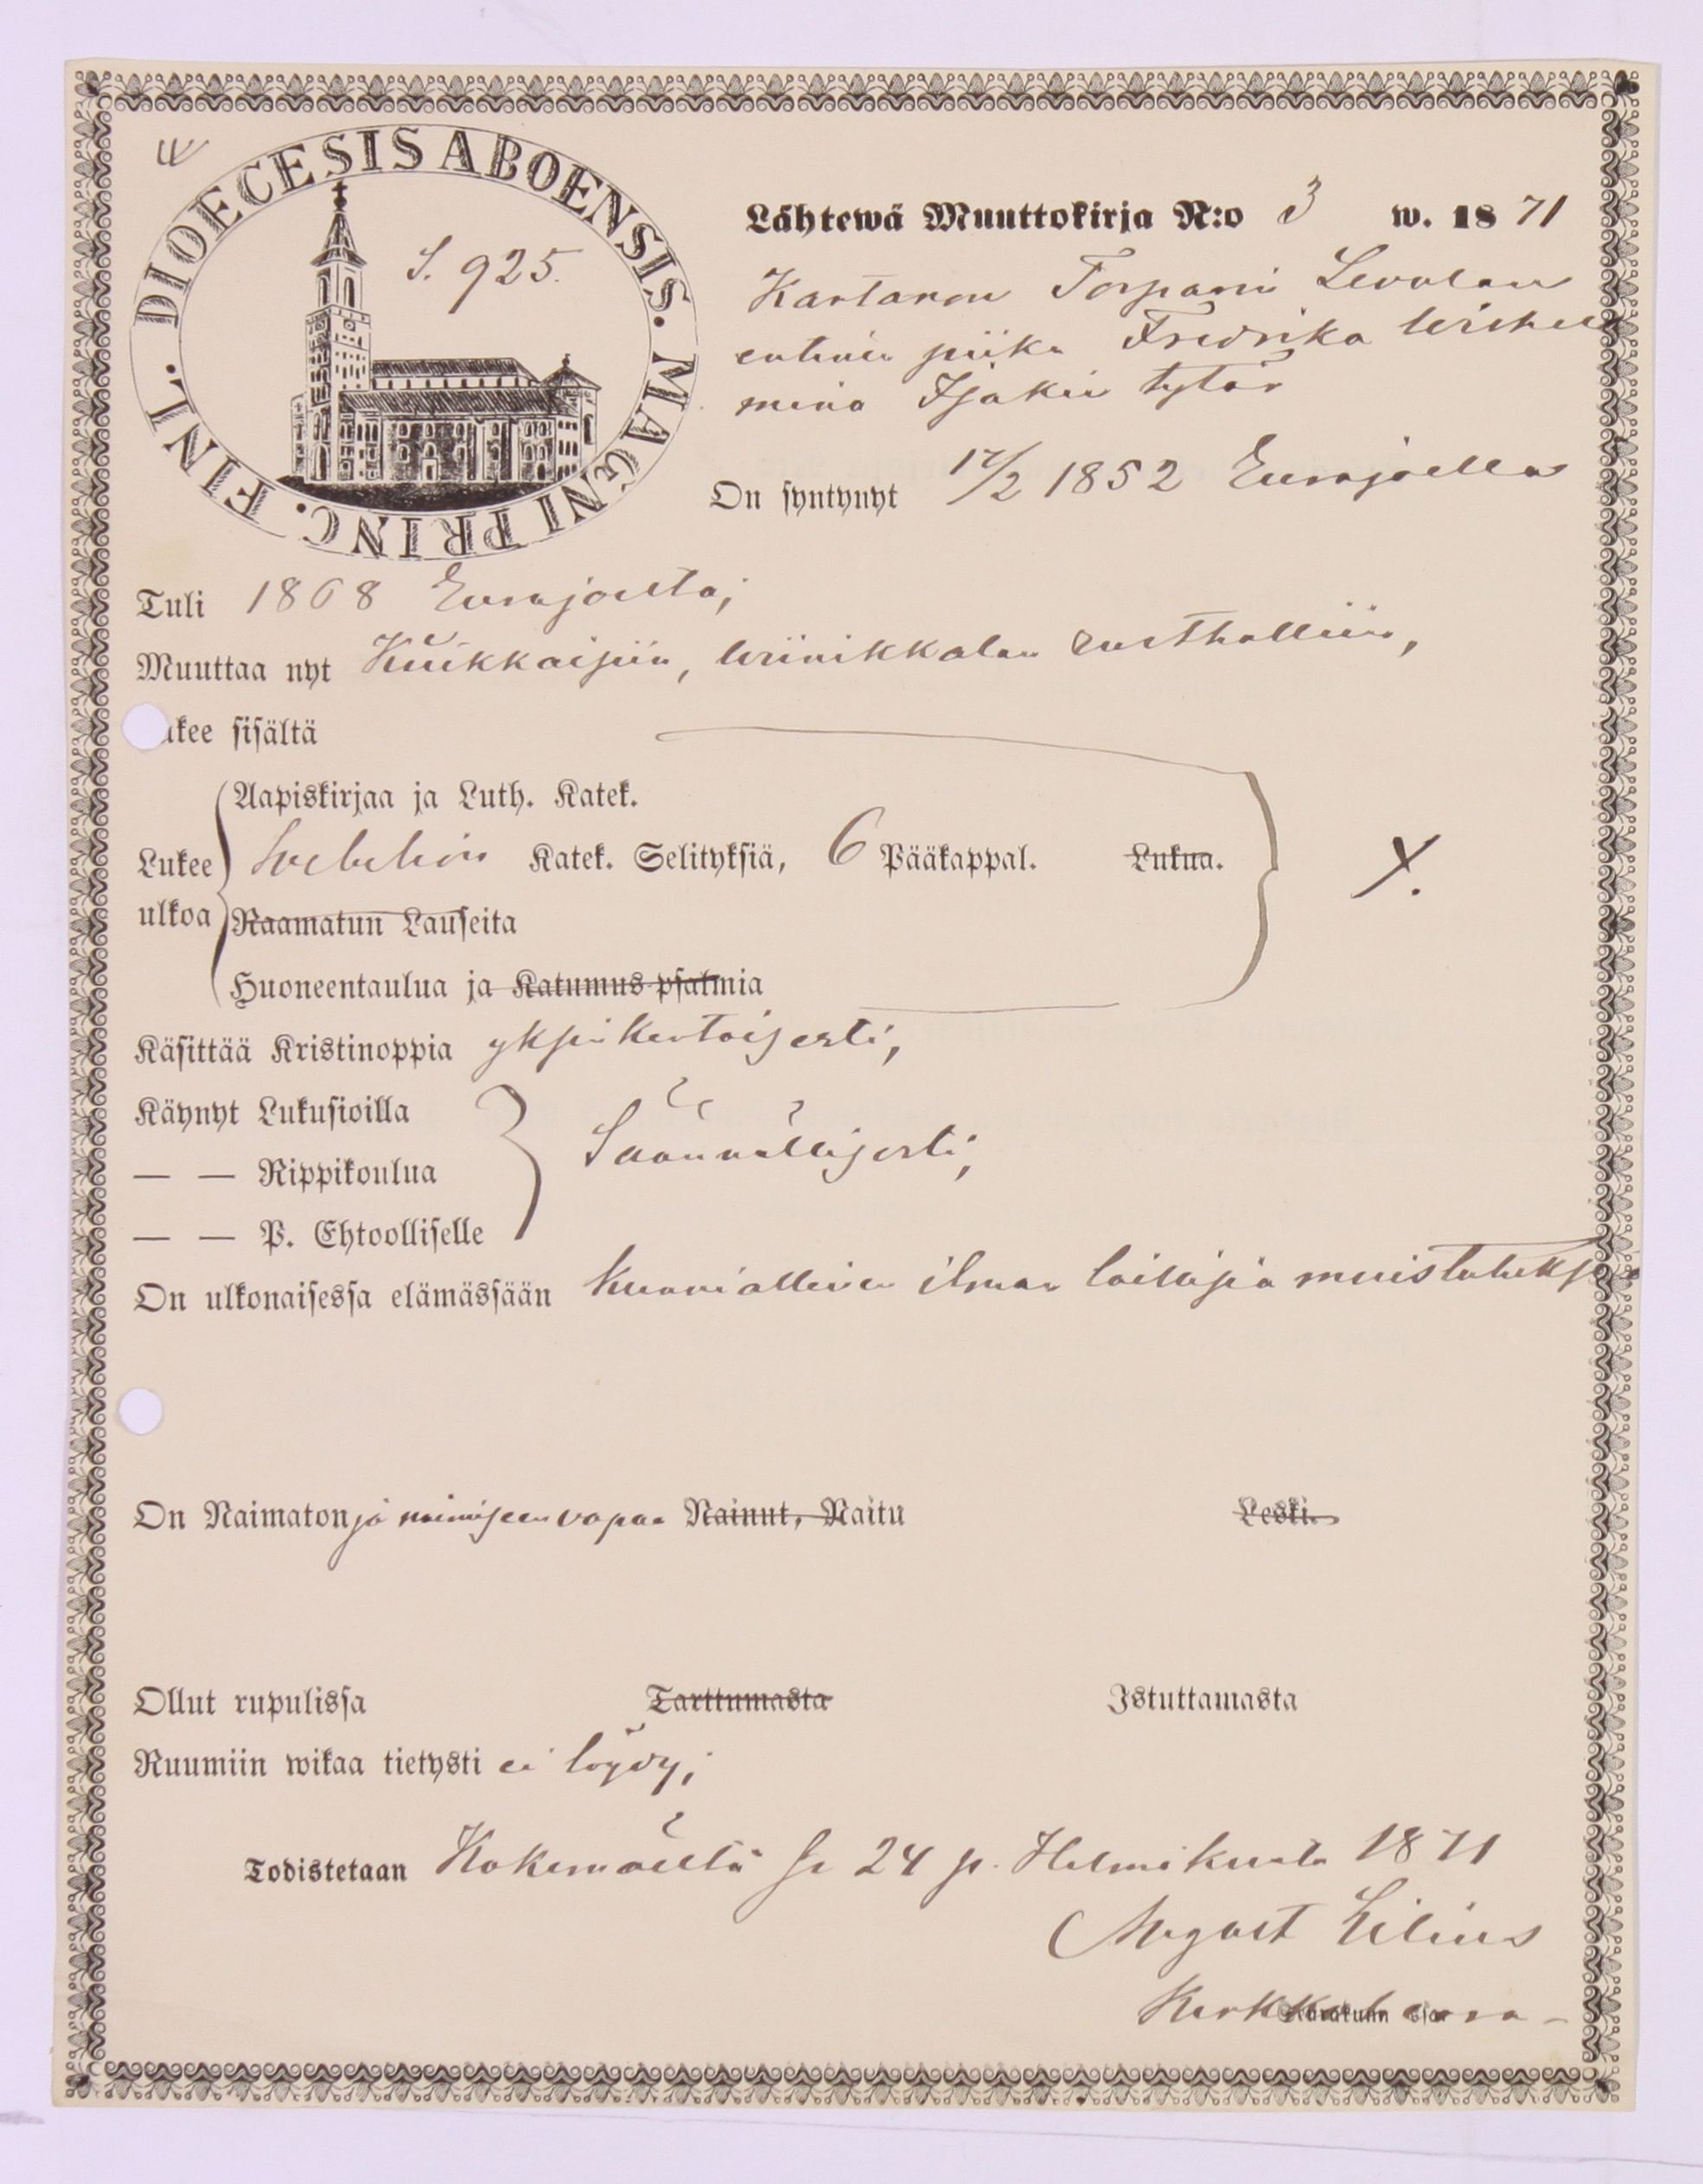 DIOECESIS ABOENSIS. MAGNI PRINC. FINL.
S. 925.
Lähtewä Muuttokirja N:o 3 w. 1871
Kartanon Torpari Levolan
entinen piika Fredrika Wilhel
mina Isakin tytär
On syntynyt 17/2 1852 Eurajoella
Tuli 1868 Eurajoelta;
Muuttaa nyt Kiukkaisiin, Wiinikkalan rustholliin,
ukee sisältä
Aapiskirjaa ja Luth. Katek.
Lukee Svebelion Katek. Selityksiä, 6 Pääkappal. Lukua. X.
ulkoa Raamatun Lauseita
Huoneentaulua ja Katumus-psalmia
Käsittää Kristinoppia yksinkertaisesti,
Käynyt Lukusioilla
— — Rippikoulua Säännöllisesti;
— — P. Ehtoolliselle
On ulkonaisessa elämässään kunniallinen ilman laillisia muistutuksia
On Naimaton ja naimiseen vapaa Nainut, Naitu Leski.
Ollut rupulissa Tarttumasta Istuttamasta
Ruumiin wikaa tietysti ei löydy;
Todistetaan Kokemäellä se 24 p. Helmikuuta 1871
August Lilius
Kirkkoherra